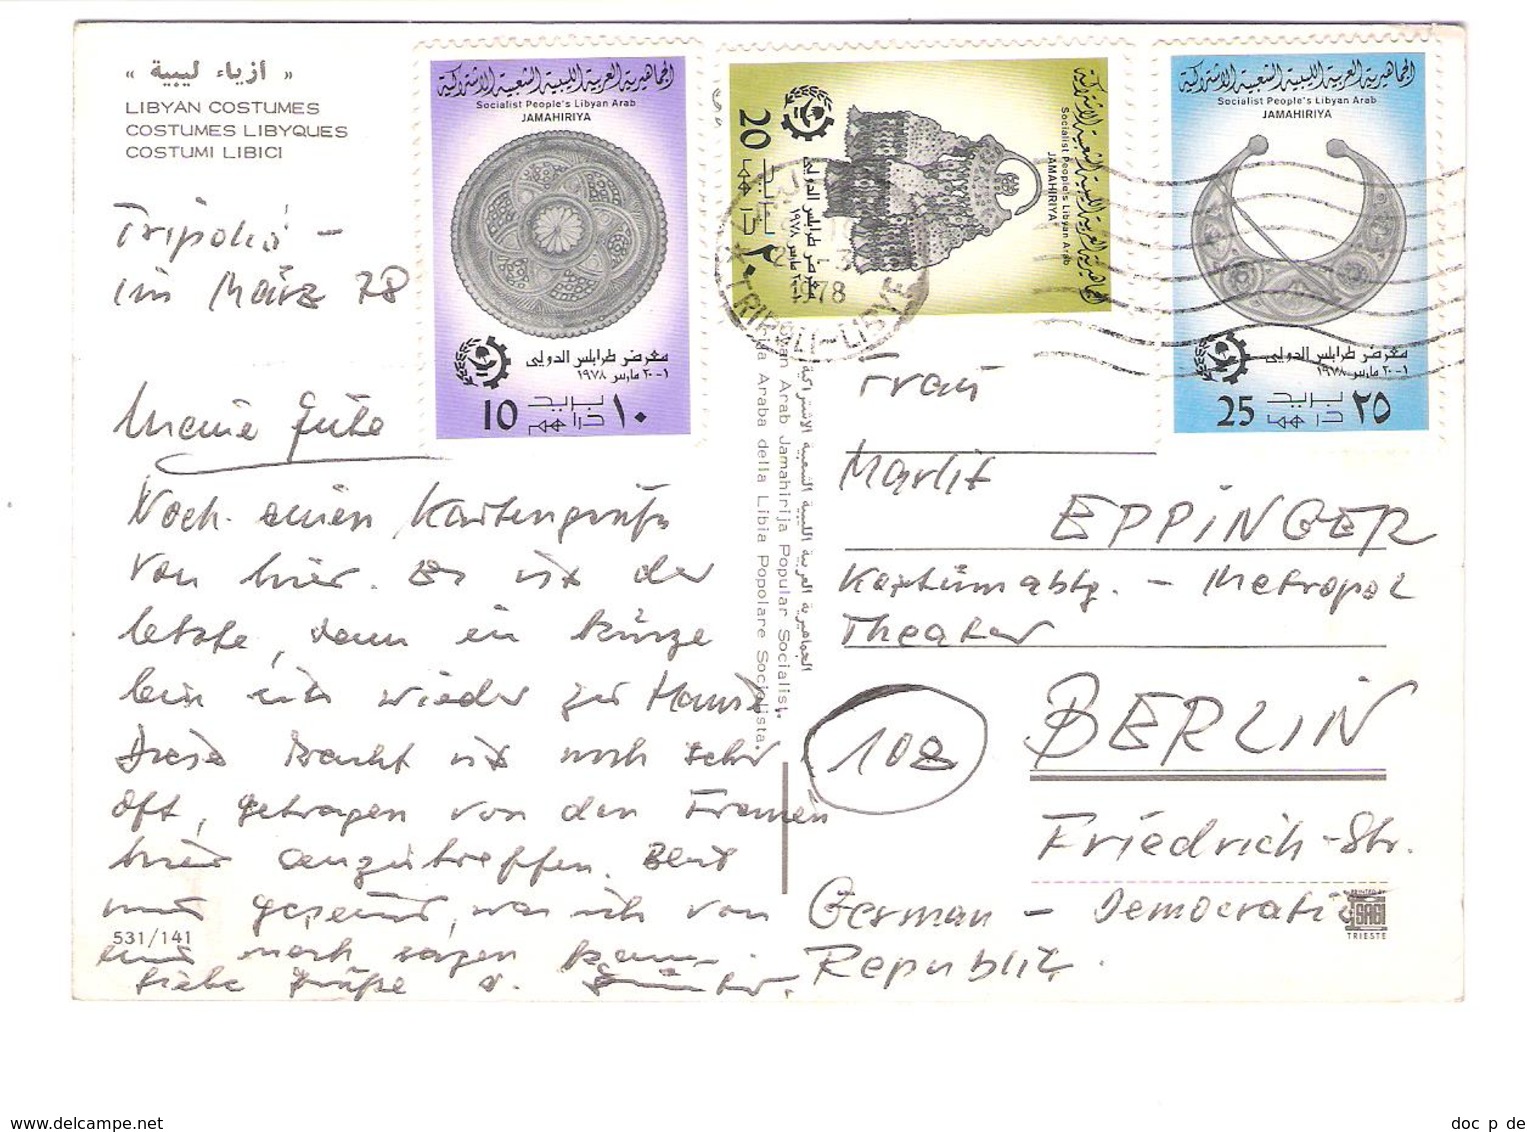 « أزياء ليبية »
LIBYAN COSTUMES
COSTUMES LIBYQUES
COSTUMI LIBICI
الجماهيرية العربية الليبية الشعبية الاشتراكية
Socialist People's Libyan Arab
JAMAHIRIYA
معرض طرابلس الدولي
١-٢٠ مارس ١٩٧٨
10 بريد دراهم ١٠
الجماهيرية العربية الليبية الشعبية الاشتراكية
Socialist People's Libyan Arab
JAMAHIRIYA
معرض طرابلس الدولي
١-٢٠ مارس ١٩٧٨
20 بريد دراهم ٢٠
الجماهيرية العربية الليبية الشعبية الاشتراكية
Socialist People's Libyan Arab
JAMAHIRIYA
معرض طرابلس الدولي
١-٢٠ مارس ١٩٧٨
25 بريد دراهم ٢٥
1978
TRIPOLI-LIBYE
Tripolis -
im März 78
Meine Gute
Noch einen Kartengruß
von hier. Es ist der
letzte, denn in Kürze
bin ich wieder zu Hause
Diese Tracht ist noch sehr
oft, getragen von den Frauen
hier anzutreffen. Bleib
mir gesund, was ich von
mir noch sagen kann.
Liebe Grüße
531/141
الجماهيرية العربية الليبية الشعبية الاشتراكية
Arab Jamahirija Popular Socialist.
Araba della Libia Popolare Socialista.
Frau
Marlit
EPPINGER
Kostümabtg. - Metropol
Theater
108
BERLIN
Friedrich-Str.
German - Democratic
Republik.
PRINTED BY
SAGI
TRIESTE
delcampe.net
doc_p_de